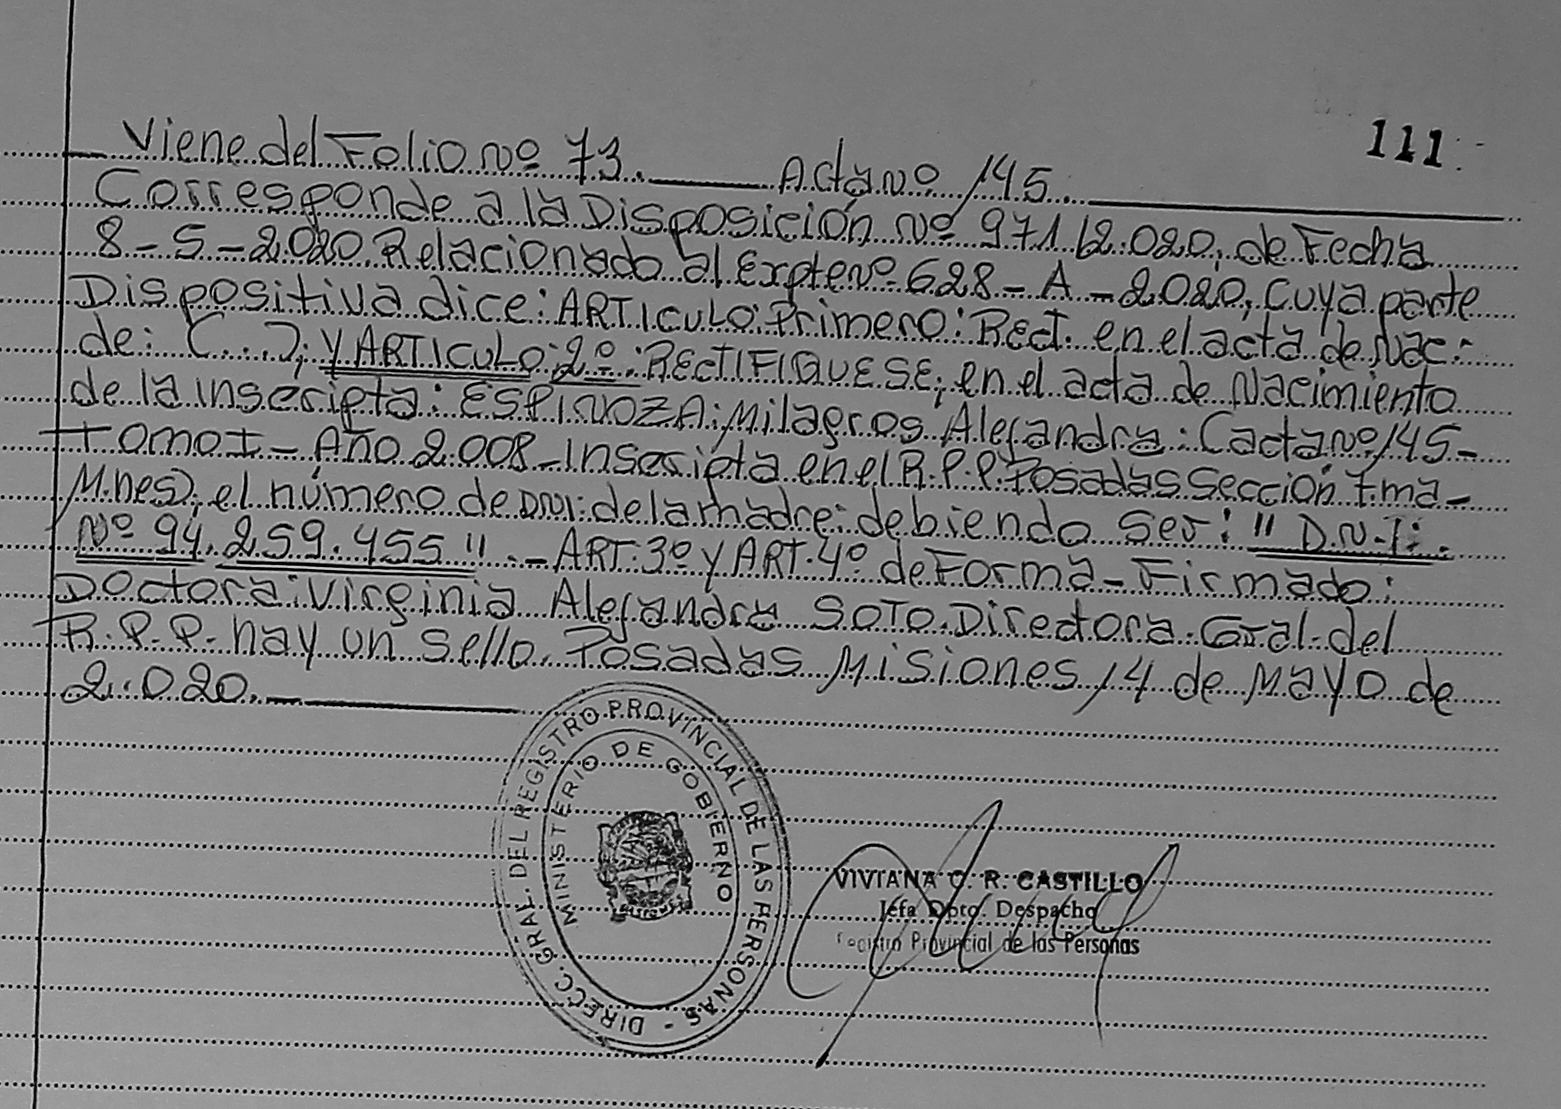 111
Viene del Folio nº 73. Acta nº 145
Corresponde a la Disposición nº 971/2.020, de Fecha
8-5-2020. Relacionado al Expte nº 628-A-2.020, cuya parte
Dispositiva dice: ARTICULO Primero: Rect. en el acta de Nac.
de: (...), Y ARTICULO: 2º: RECTIFIQUESE, en el acta de Nacimiento
de la inscripta: ESPINOZA: Milagros, Alejandra: (acta nº 145-
Tomo I- Año 2.008-Inscripta en el R.P.P. Posadas Sección 7ma-
M.nes), el número de DNI: de la madre: debiendo ser: "D.N.I:
Nº 94.259.455".- ART: 3º Y ART. 4º de Forma- Firmado:
Doctora: Virginia Alejandra SOTO. Directora Gral. del
R.P.P. hay un sello. Posadas Misiones 14 de Mayo de
2.020.
DIRECC. GRAL. DEL REGISTRO PROVINCIAL DE LAS PERSONAS -
MINISTERIO DE GOBIERNO
MISIONES
VIVIANA C. R. CASTILLO
Jefa Dpto. Despacho
Registro Provincial de las Personas